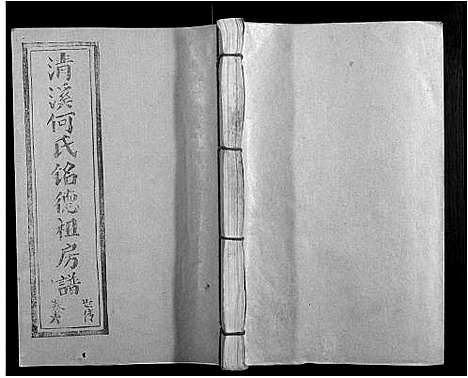 清溪何氏銘德祖房譜